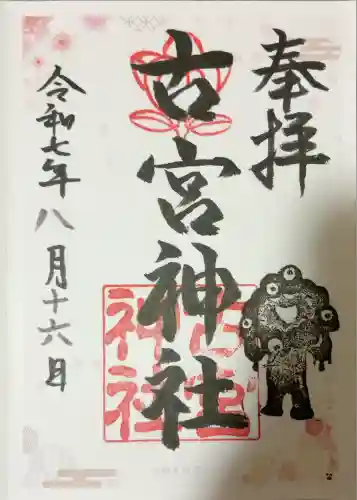 奉拝
古宮神社
古宮
神社
令和七年八月十六日